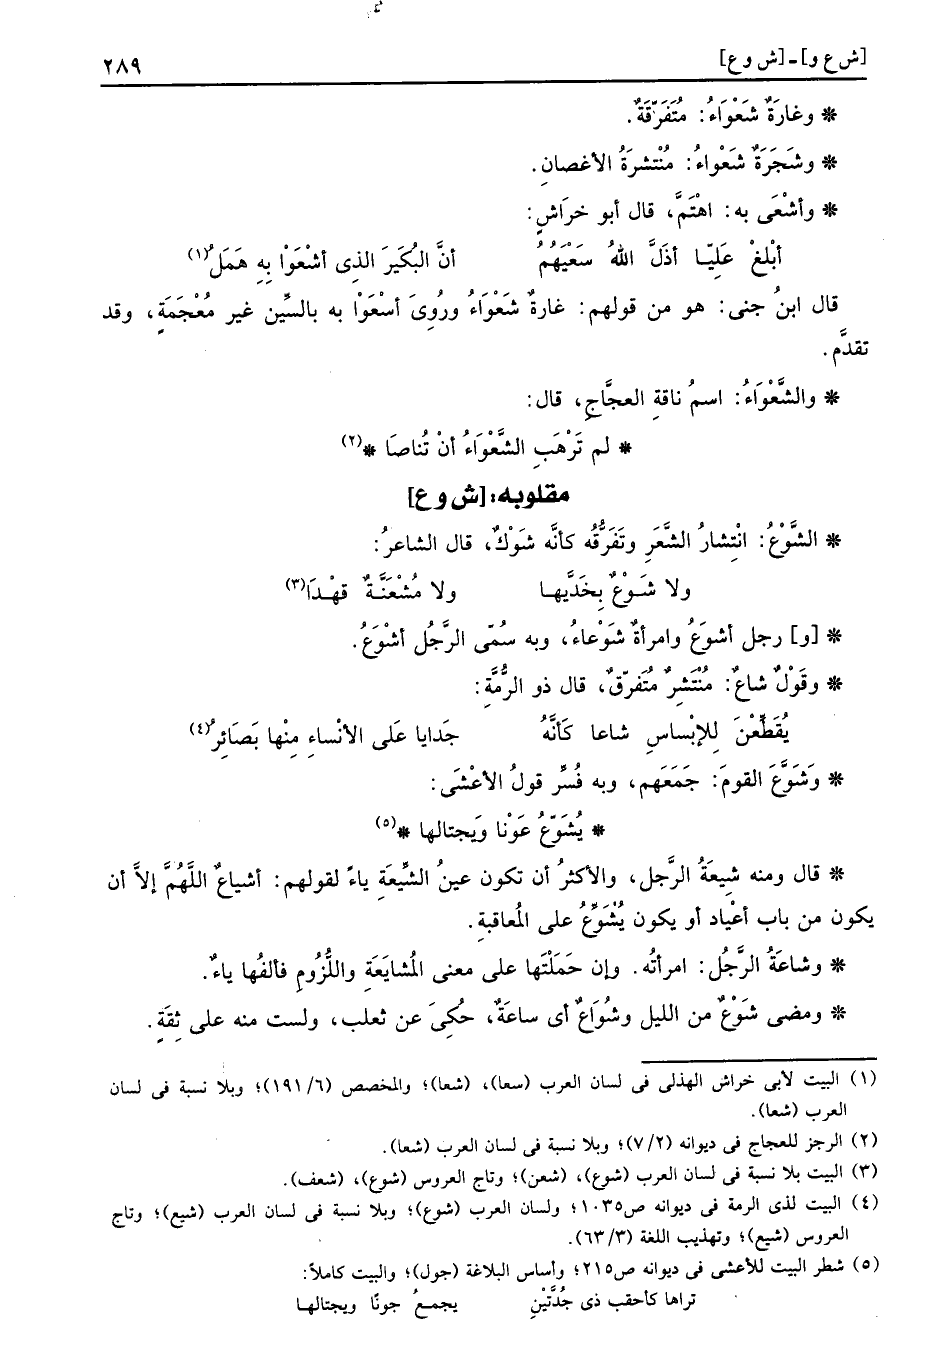 [ش ع و] - [ش و ع] ٢٨٩
* وغارَةٌ شَعْوَاءُ: مُتَفَرّقَةٌ.
* وشَجَرَةٌ شَعْواءُ: مُنْتشرَةُ الأغصانِ.
* وأشْعَى به: اهْتَمَّ، قال أبو خرَاشٍ:
أبْلغْ عَليّا أذَلَّ اللهُ سَعْيَهُمُ أنَّ البُكَيرَ الذِى أشْعَوْا بِهِ هَمَلُ(١)
قال ابنُ جنى: هو من قولهم: غارةٌ شَعْوَاءُ ورُوِىَ أسْعَوْا به بالسِّين غير مُعْجَمَةٍ، وقد
تقدَّم.
* والشَّعْوَاءُ: اسمُ ناقةِ العجَّاجِ، قال:
* لم تَرْهَبِ الشَّعْوَاءُ أنْ تُناصَا *(٢)
مقلوبه: [ش و ع]
* الشَّوْعُ: انْتِشارُ الشعَرِ وتَفَرُّقُه كأنَّه شَوْكٌ، قال الشاعرُ:
ولا شَوْعٌ بِخَدَّيها ولا مُشْعَنَّةٌ قهْدَا(٣)
* [و] رجل أشوَعُ وامرأةٌ شَوْعاءُ، وبه سُمّى الرَّجُل أشْوَعُ.
* وقَوْلٌ شاعٌ: مُنْتَشِرٌ مُتَفرّقٌ، قال ذو الرمَّةِ:
يُقَطِّعْنَ لِلإبْساسِ شاعا كَأنَّهُ جَدايا عَلى الأنْساءِ مِنْها بَصَائِرُ(٤)
* وَشَوَّعَ القومَ: جَمَعَهم، وبه فُسِّر قولُ الأعْشَى:
* يُشَوّعُ عَوْنا وَيَجتالها *(٥)
* قال ومنه شِيعَةُ الرَّجل، والأكثرُ أن تكون عينُ الشِّيعَةِ ياءً لقولهم: أشياعٌ اللَّهُمَّ إلاَّ أن
يكون من باب أعْياد أو يكون يُشَوِّعُ على المُعاقبةِ.
* وشاعَةُ الرَّجُل: امرأتُه. وإن حَمَلْتَها على معنى المُشايَعَةِ واللُّزُومِ فألفُها ياءٌ.
* ومضى شَوْعٌ من الليل وشُوَاعٌ أى ساعَةٌ، حُكِىَ عن ثعلب، ولست منه على ثِقَةٍ.
(١) البيت لأبى خراش الهذلى فى لسان العرب (سعا)، (شعا)؛ والمخصص (٦/ ١٩١)؛ وبلا نسبة فى لسان
العرب (شعا).
(٢) الرجز للعجاج فى ديوانه (٢/ ٧)؛ وبلا نسبة فى لسان العرب (شعا).
(٣) البيت بلا نسبة فى لسان العرب (شوع)، (شعن)؛ وتاج العروس (شوع)، (شعف).
(٤) البيت لذى الرمة فى ديوانه ص١٠٣٥؛ ولسان العرب (شوع)؛ وبلا نسبة فى لسان العرب (شيع)؛ وتاج
العروس (شيع)؛ وتهذيب اللغة (٣/ ٦٣).
(٥) شطر البيت للأعشى فى ديوانه ص٢١٥؛ وأساس البلاغة (جول)؛ والبيت كاملاً:
تراها كأحقب ذى جُدَّتَيْنِ يجمعُ جونًا ويجتالها